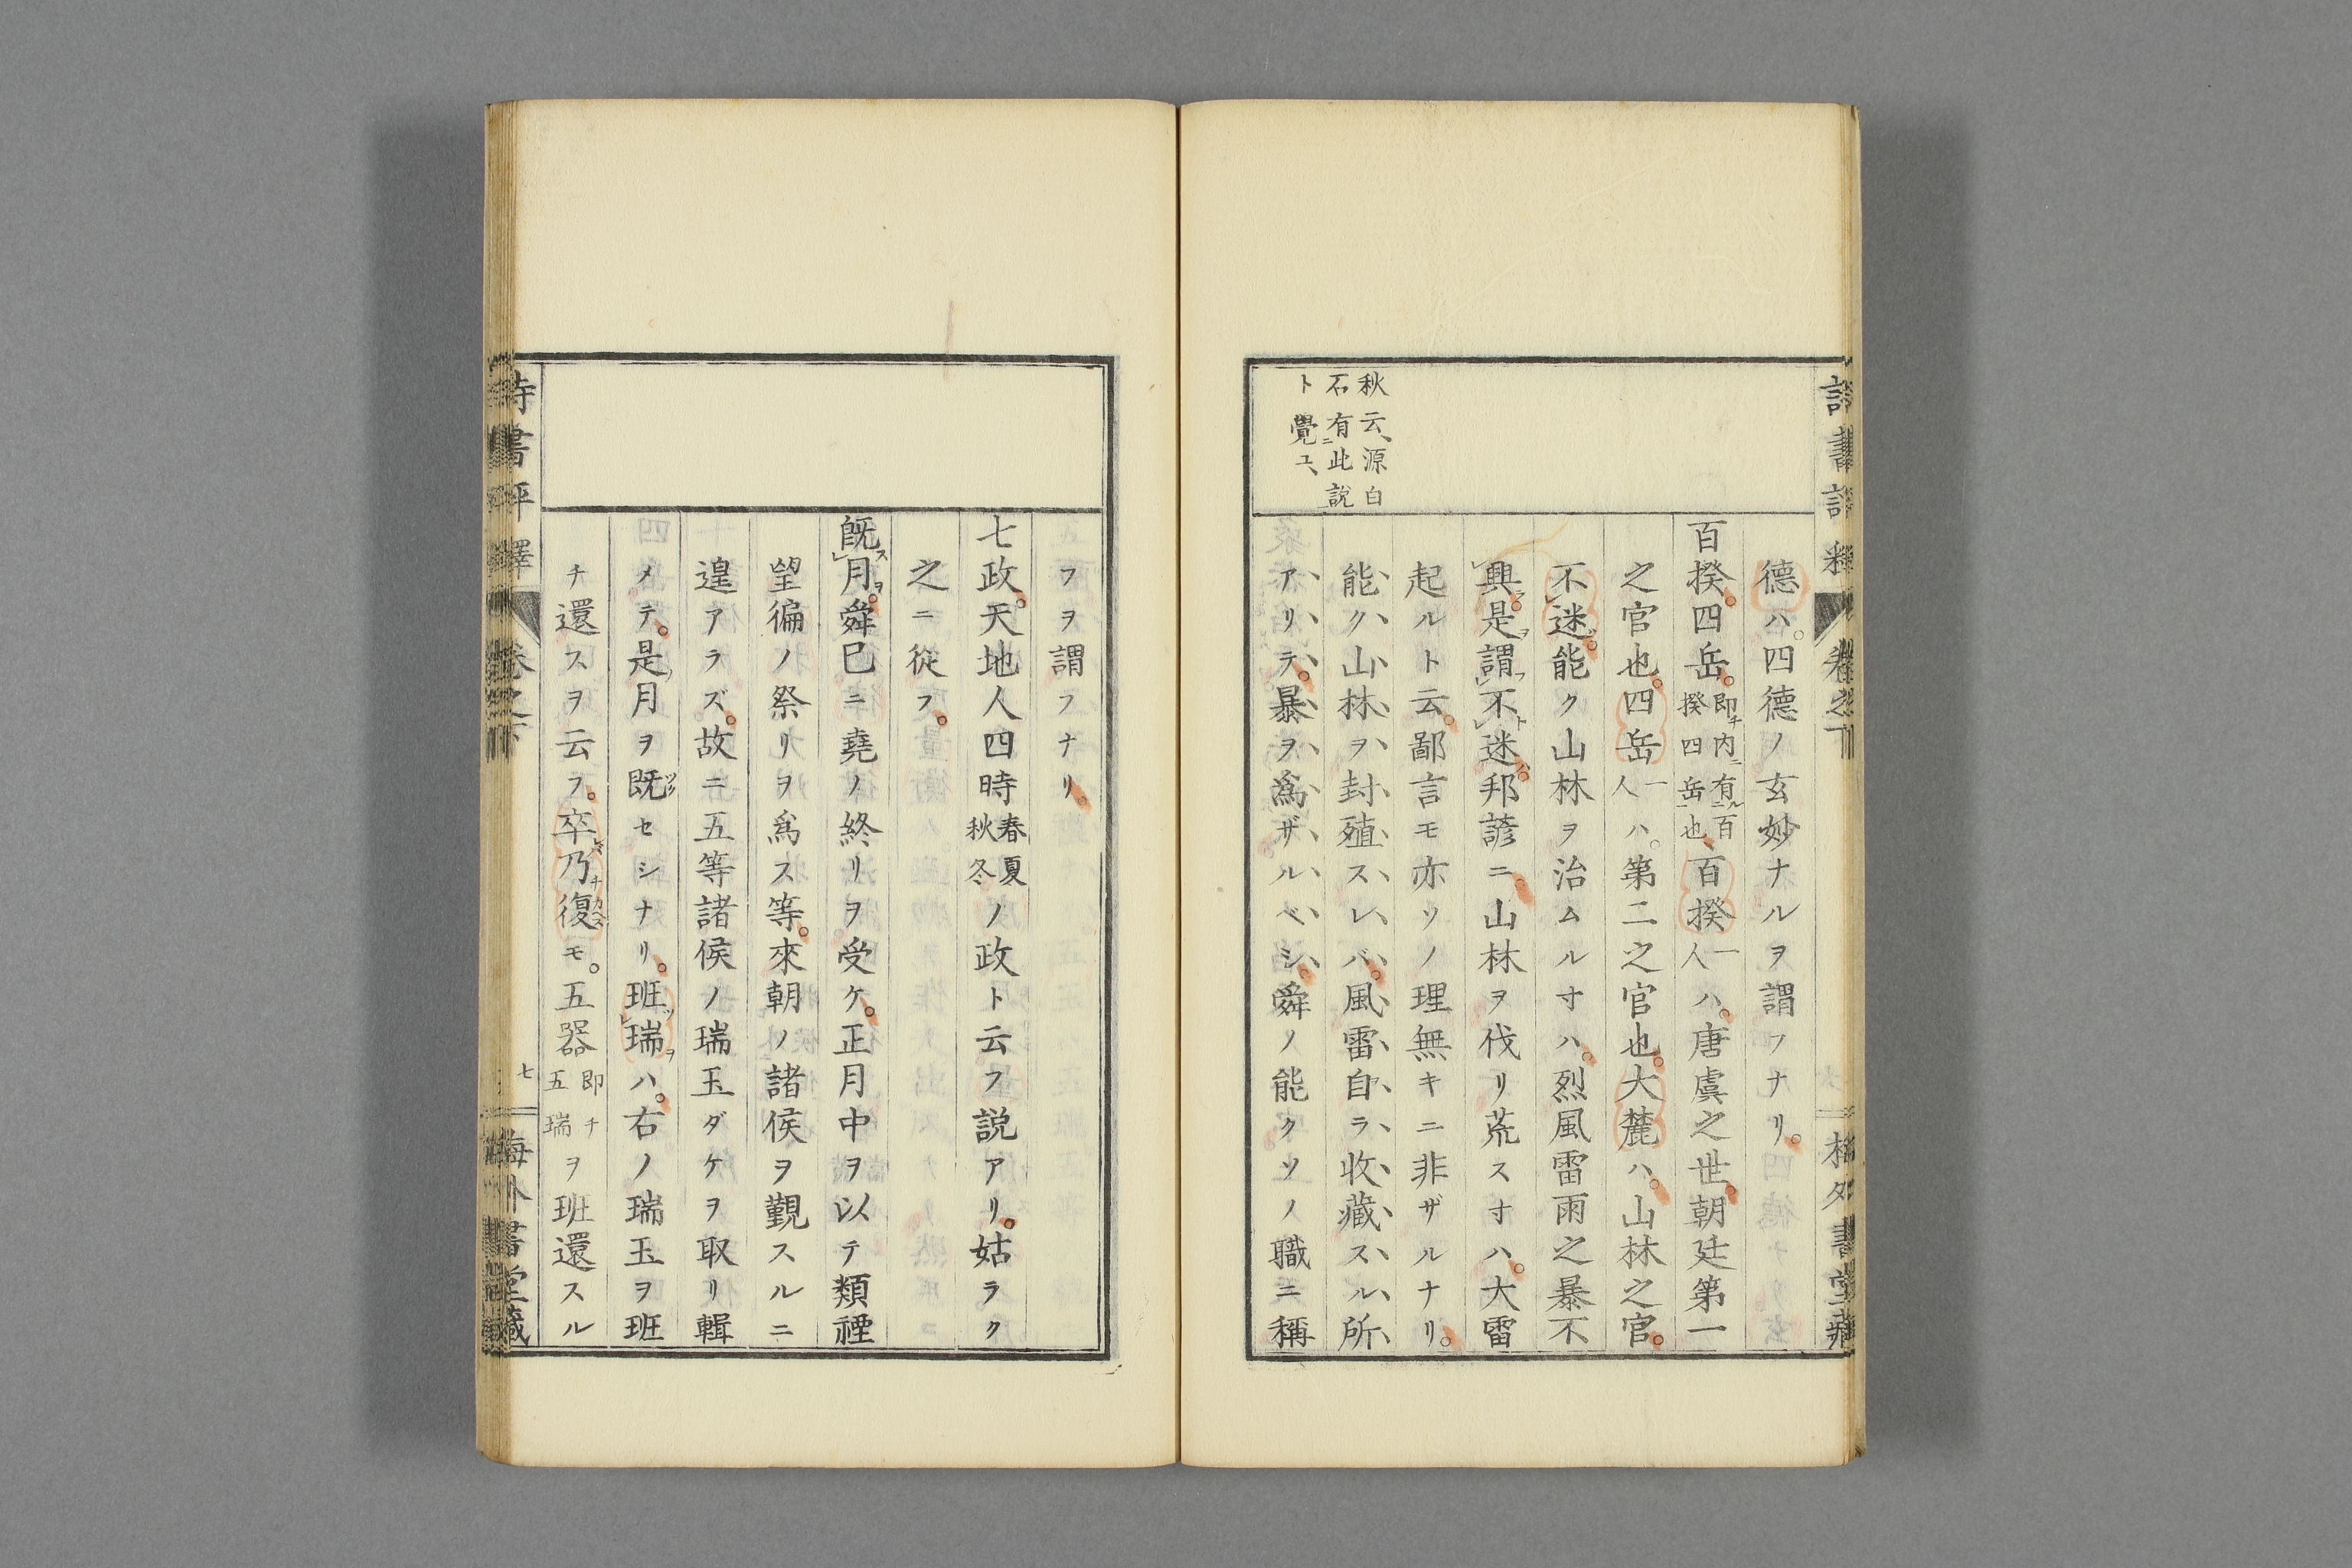 秋云、源白
石有ニ此説
ト覺ユ、
德ハ。四德ノ玄妙ナルヲ謂フナリ。
百揆。四岳。即チ内ニ有ル百揆四岳ニ也、百揆一人ハ。唐虞之世。朝廷第一
之官也。四岳一人ハ。第二之官也。大麓ハ。山林之官。
不迷。能ク山林ヲ治ムル寸ハ。烈風雷雨之暴不
興。是ヲ謂フ不ト迷。邦諺ニ。山林ヲ伐リ荒ス寸ハ。大雷
起ルト云。鄙言モ亦ソノ理無キニ非ザルナリ。
能ク山林ヲ封殖スレバ。風雷自ラ收藏スル所
アリテ。暴ヲ爲ザルベシ。舜ノ能クソノ職ニ稱
フヲ謂フナリ。
七政。天地人四時春夏秋冬ノ政ト云フ説アリ。姑ラク
之ニ從フ。
既スレ月ヲ。舜已ニ堯ノ終リヲ受ケ。正月中ヲ以テ類禋
望徧ノ祭リヲ爲ス等。來朝ノ諸侯ヲ觀スルニ
遑アラズ。故ニ五等諸侯ノ瑞玉ダケヲ取リ輯
メテ。是月ヲ既ツクセシナリ。班ツレ瑞ヲハ。右ノ瑞玉ヲ班
チ還スヲ云フ。卒乃チ復カヘスモ。五器即チ五瑞ヲ班還スル
卷之下
七